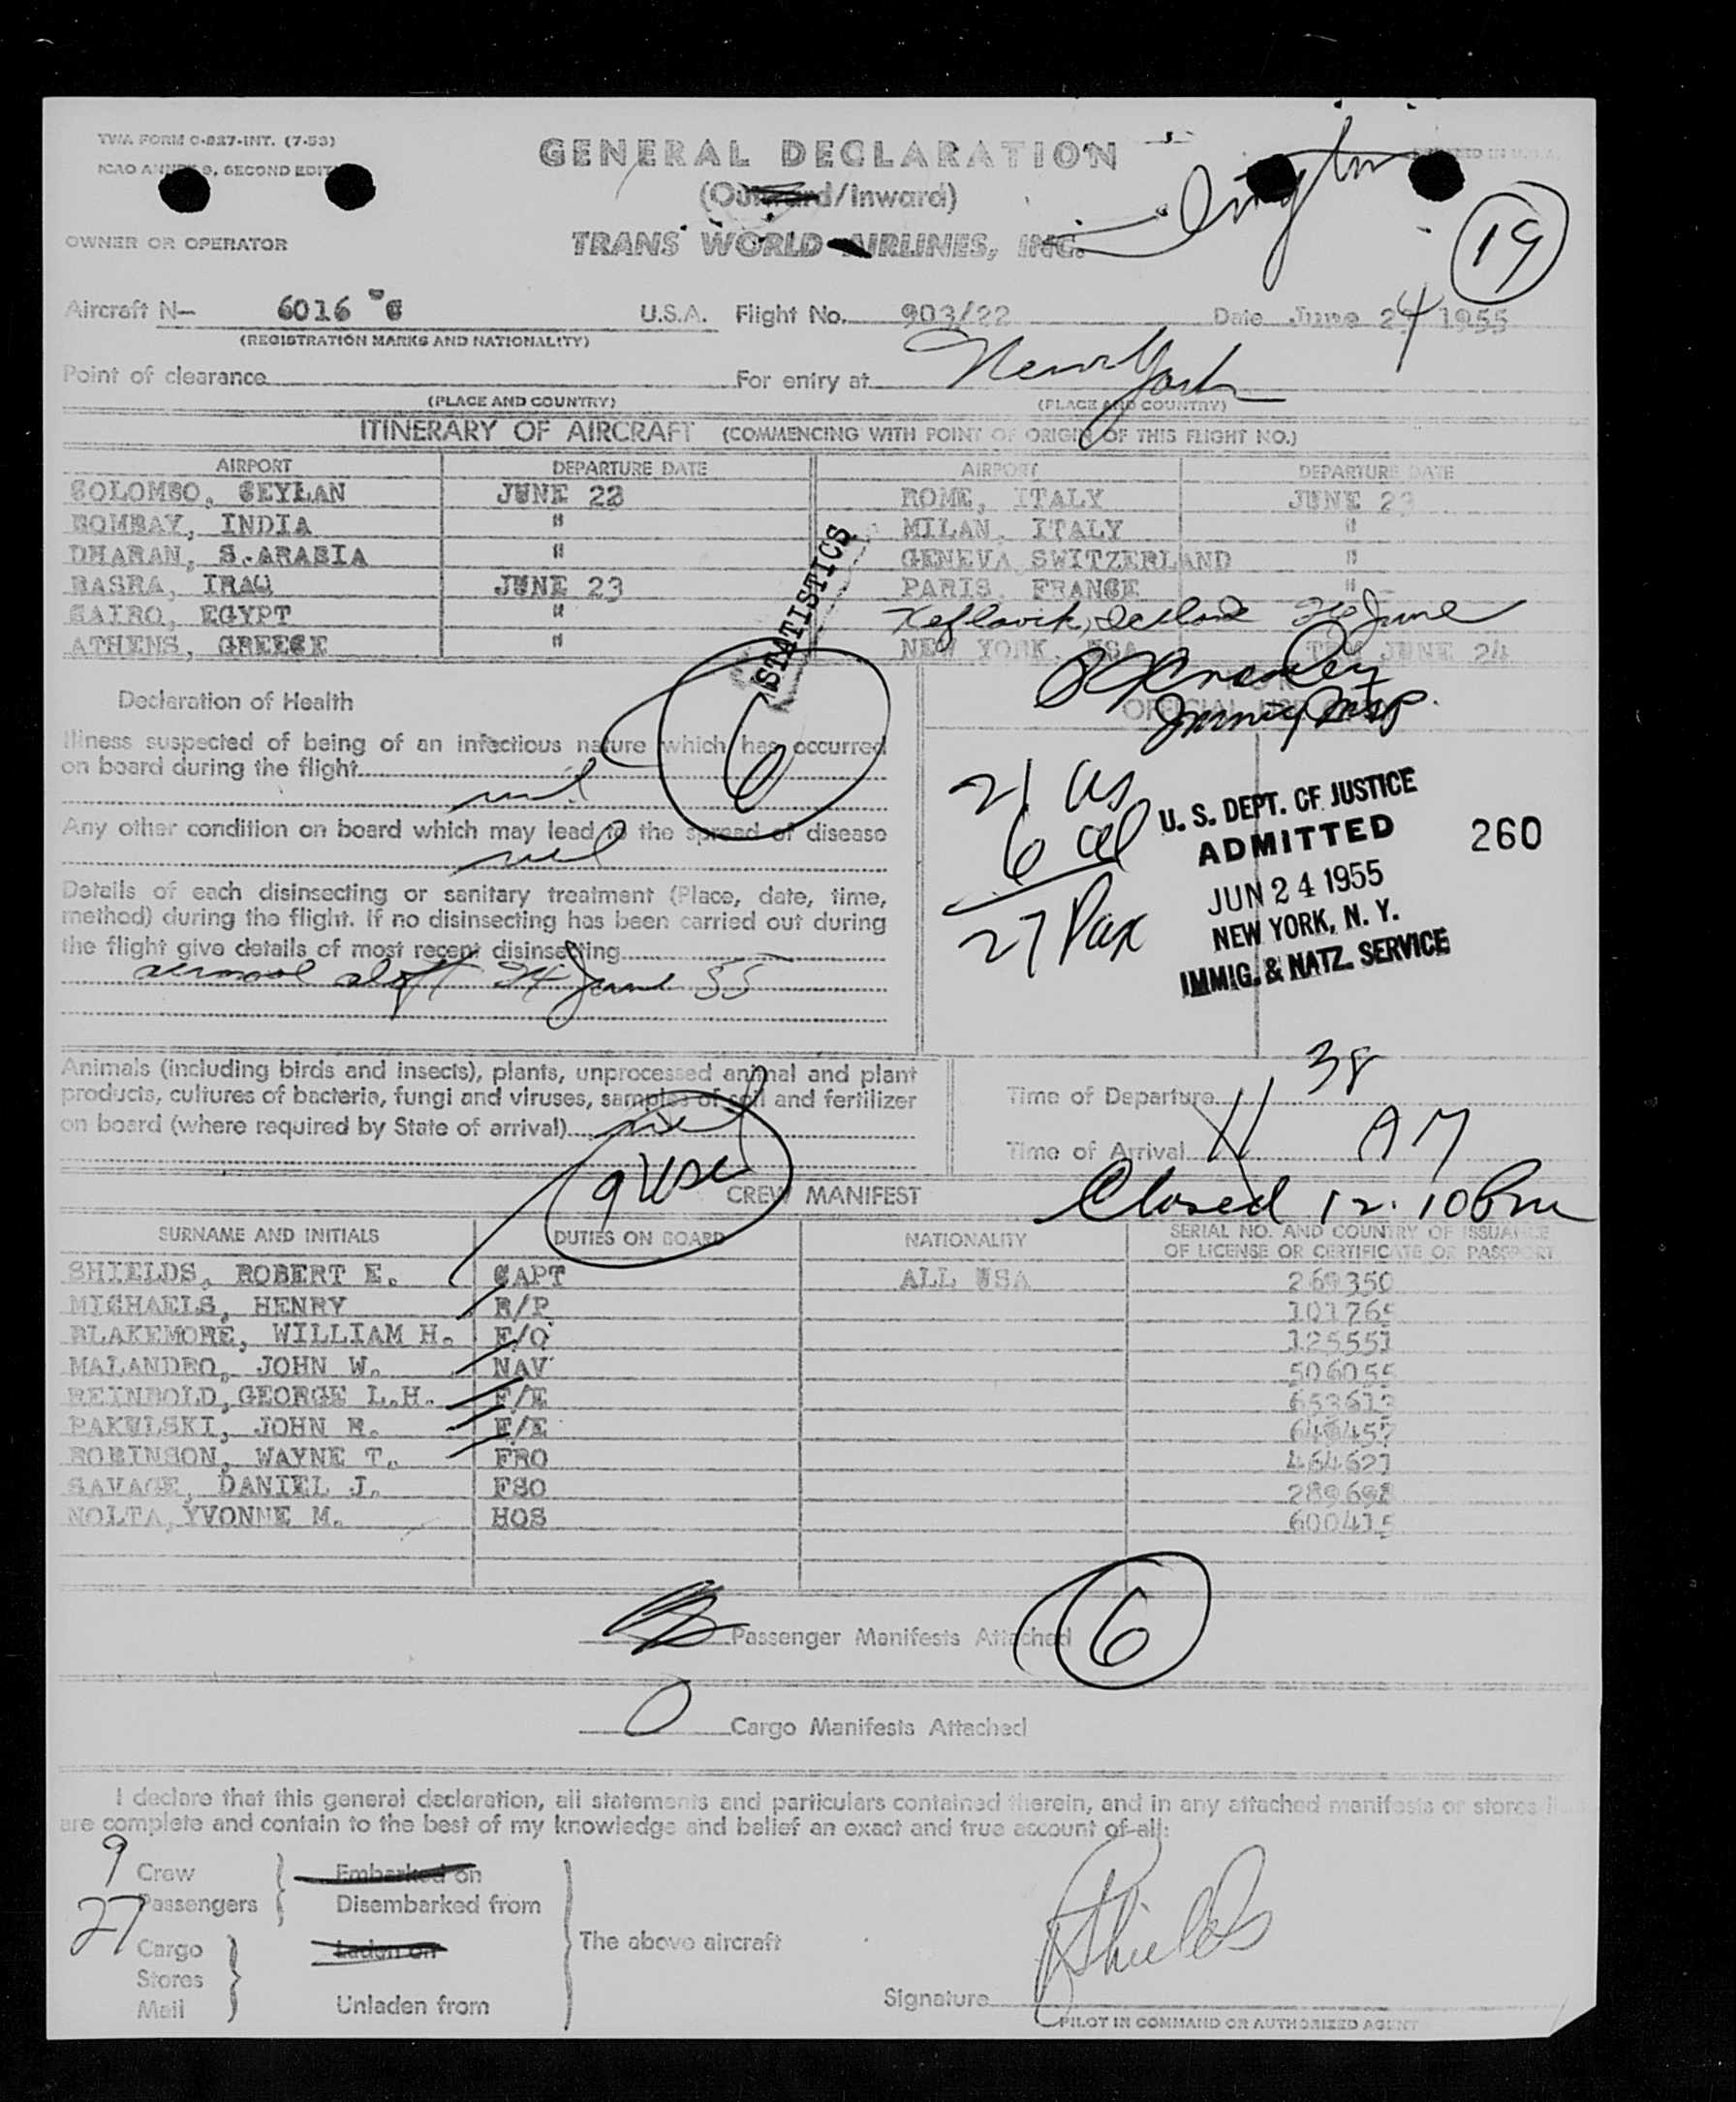 TWA FORM O-827-INT. (7-53)
ICAO ANNEX 9, SECOND EDITION
GENERAL DECLARATION
(Outward/Inward)
OWNER OR OPERATOR
TRANS WORLD AIRLINES, INC.
19
Aircraft N- 6016 C U.S.A. Flight No. 903/22 Date June 24 1955
(REGISTRATION MARKS AND NATIONALITY)
Point of clearance For entry at New York
(PLACE AND COUNTRY) (PLACE AND COUNTRY)
ITINERARY OF AIRCRAFT (COMMENCING WITH POINT OF ORIGIN OF THIS FLIGHT NO.)
AIRPORT DEPARTURE DATE AIRPORT DEPARTURE DATE
COLOMBO, CEYLAN JUNE 22 ROME, ITALY JUNE 23
BOMBAY, INDIA " MILAN, ITALY "
DHARAN, S.ARABIA " GENEVA SWITZERLAND "
BASRA, IRAQ JUNE 23 PARIS, FRANCE "
CAIRO, EGYPT " Keflavik, Iceland 24 June
ATHENS, GREECE " NEW YORK, USA JUNE 24
STATISTICS
6
Declaration of Health
OFFICIAL USE
Immig Insp.
Illness suspected of being of an infectious nature which has occurred
on board during the flight
nil
Any other condition on board which may lead to the spread of disease
nil
Details of each disinsecting or sanitary treatment (Place, date, time,
method) during the flight. If no disinsecting has been carried out during
the flight give details of most recent disinsecting
aerosol aloft 24 June 55
21 US
6 al
27 Pax
U. S. DEPT. OF JUSTICE
ADMITTED
JUN 24 1955
NEW YORK, N. Y.
IMMIG. & NATZ. SERVICE
260
Animals (including birds and insects), plants, unprocessed animal and plant
products, cultures of bacteria, fungi and viruses, samples of soil and fertilizer
on board (where required by State of arrival) nil
Time of Departure
Time of Arrival 11 38 AM
9 USC
CREW MANIFEST
Closed 12.10 Pm
SURNAME AND INITIALS DUTIES ON BOARD NATIONALITY SERIAL NO. AND COUNTRY OF ISSUANCE
OF LICENSE OR CERTIFICATE OR PASSPORT
SHIELDS, ROBERT E. CAPT ALL USA 269350
MICHAELS, HENRY R/P 101765
BLAKEMORE, WILLIAM H. F/O 125551
MALANDRO, JOHN W. NAV 506055
REINBOLD, GEORGE L.H. F/E 653613
PAKULSKI, JOHN R. F/E 646457
ROBINSON, WAYNE T. FRO 464621
SAVAGE, DANIEL J. FSO 289698
NOLTA, YVONNE M. HOS 600415
Passenger Manifests Attached 6
0 Cargo Manifests Attached
I declare that this general declaration, all statements and particulars contained therein, and in any attached manifests or stores list
are complete and contain to the best of my knowledge and belief an exact and true account of all:
9 Crew Embarked on
27 Passengers Disembarked from
The above aircraft
Cargo Laden on
Stores
Mail Unladen from
Signature R Shields
PILOT IN COMMAND OR AUTHORIZED AGENT